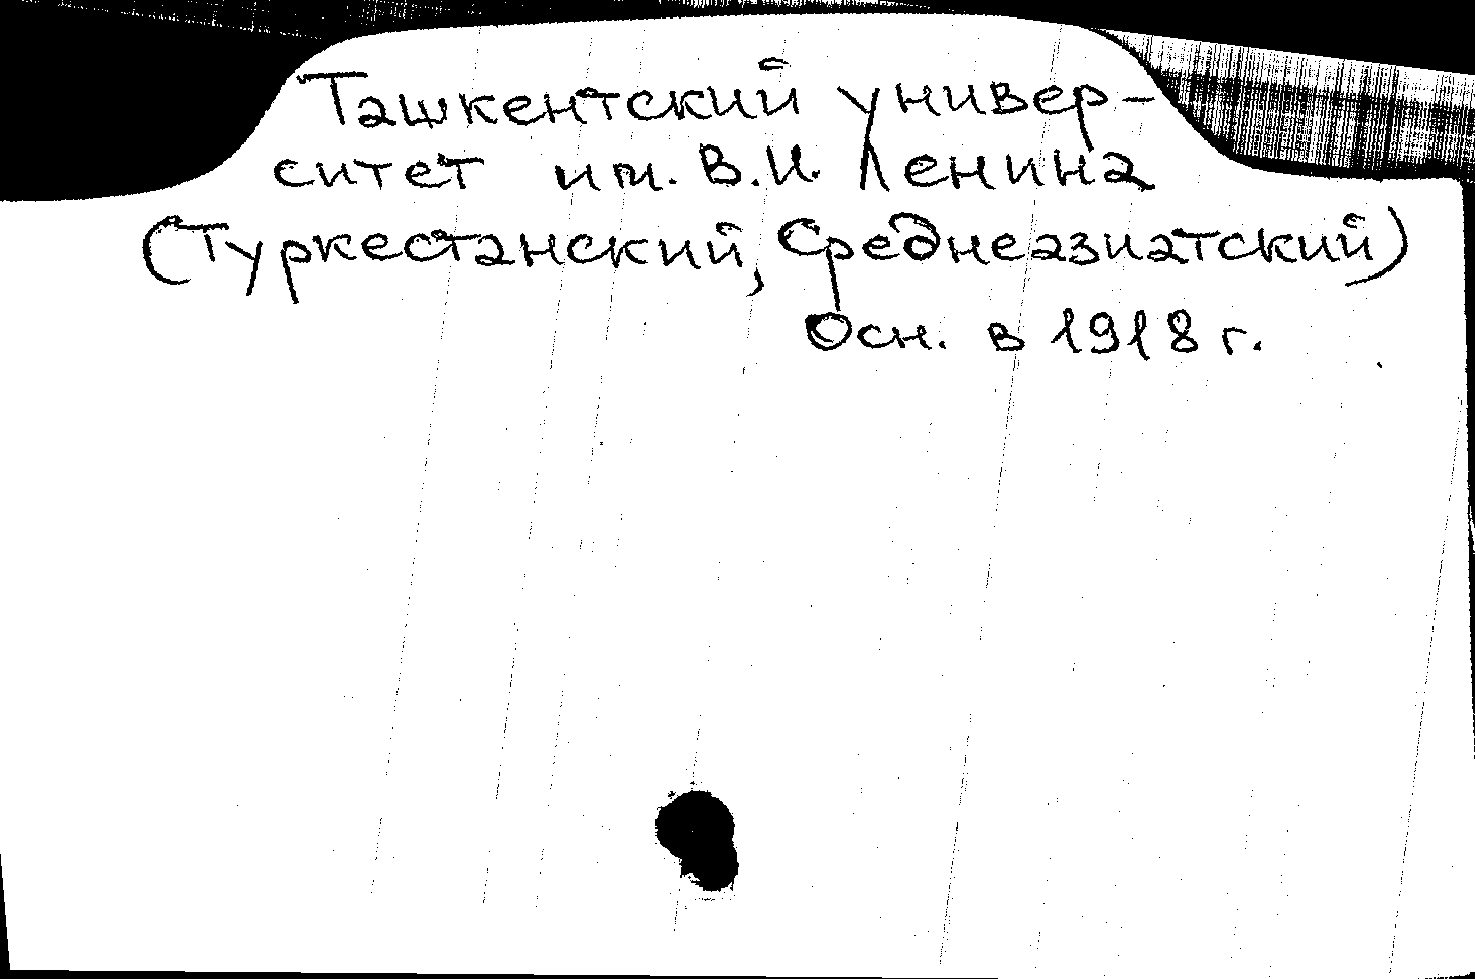 Ташкентский универ-
ситет им. В.И. Ленина
(Туркестанский, Среднеазиатский)
Осн. в 1918 г.